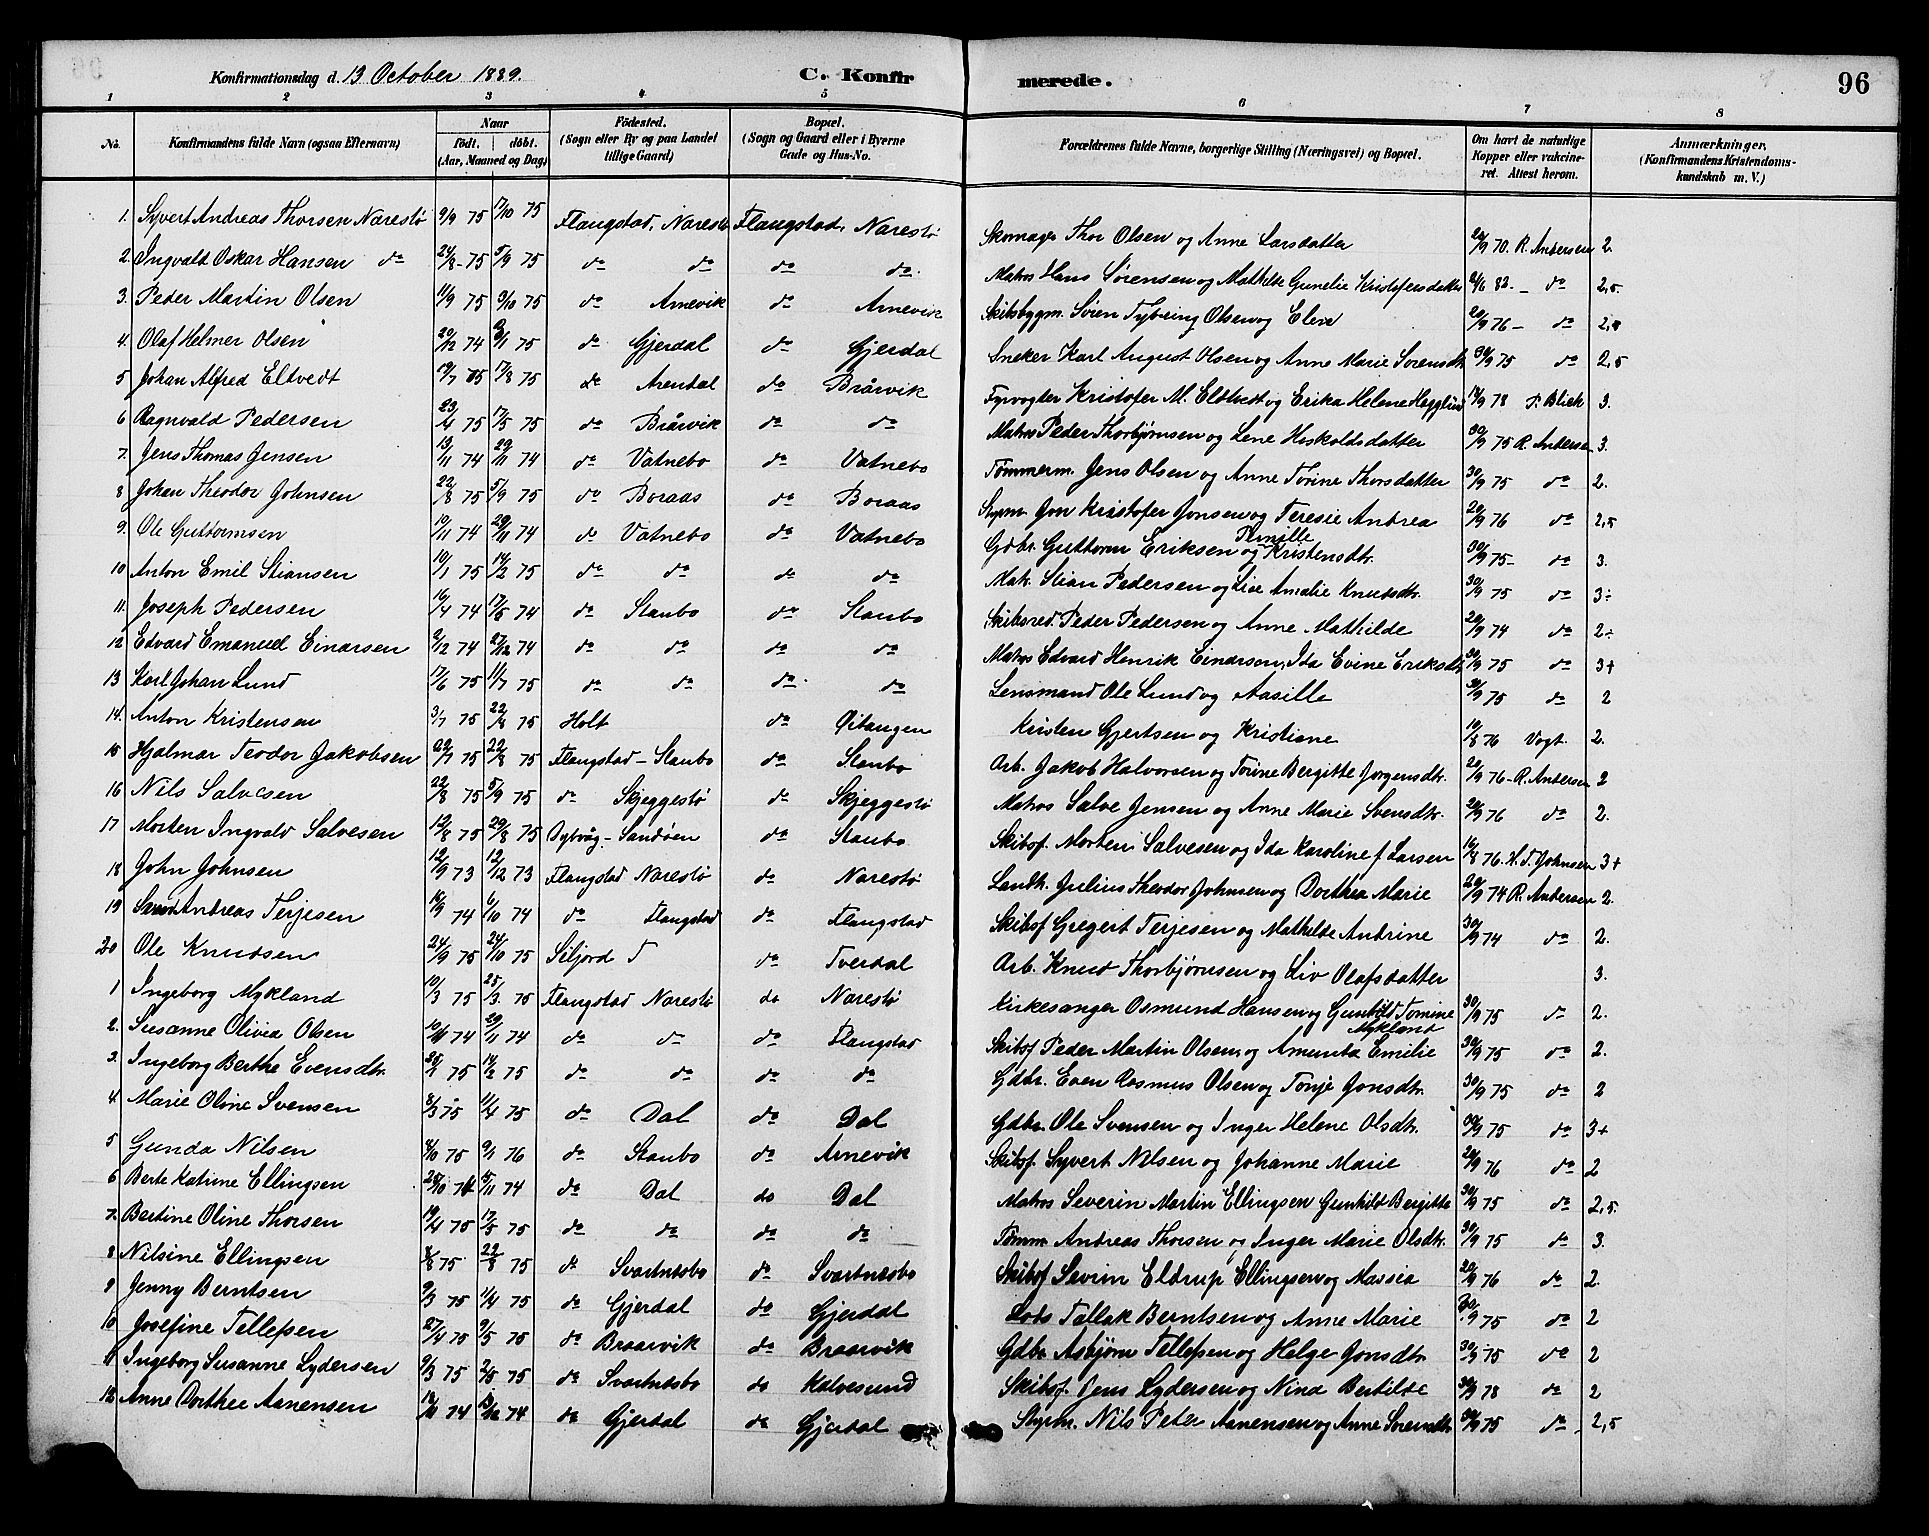 Konfirmationsdag d. 13 October 1889. C. Konfir merede. 96
1 2 3 4 5 6 7 8
No. Konfirmandens fulde Navn (ogsaa Efternavn) Naar födt. döbt. (Aar, Maaned og Dag) Födested. (Sogn eller By og paa Landet tillige Gaard) Bopæl. (Sogn og Gaard eller i Byerne Gade og Hus-No. Forældrenes fulde Navne, borgerlige Stilling (Næringsvei) og Bopæl. Om havt de naturlige Kopper eller vakcineret. Attest herom. Anmærkninger. (Konfirmandens Kristendomskundskab m. V.)
1. Syvert Andreas Thorsen Narestö 9/9 75 17/10 75 Flangstad, Narestö Flangstad, Narestö Skomager Thor Olsen og Anne Larsdatter 70. R. Andersen 2.
2. Ingvald Oskar Hansen do 24/8 - 75 5/9 75 do do do do. Matros Hans Sörensen og Mathilde Gunelie Kristofersdatter 82. - do 2,5.
3. Peder Martin Olsen 11/9 75 9/10 75 do Arnevik do Arnevik Skibsbygm. Sören Tybring Olsen og Elen 20/9 76 - do 2,5
4. Olaf Helmer Olsen 20/12 74 75 do Gjerdal do Gjerdal Sneker Karl August Olsen og Anne Marie Sorensdtr. 30/9 75 do 2,5
5 Johan Alfred Eltvedt 19/7 75 17/8 75 do Arendal do Brårvik Fyrvogter Kristofer M. Eltvedt og Erika Helene Hegglund 78 P. Blich 3.
6 Ragnvald Pedersen 23/4 75 17/5 75 do Brårvik do do Matros Peder Thorbjörnsen og Lene Hiskoldsdatter 30/9 75 R. Andersen 3.
7. Jens Thomas Jensen 13/11 74 29/11 74 do Vatnebo do Vatnebo Tömmerm. Jens Olsen og Anne Torine Thorsdatter 30/9 75 do 2.
8 Johan Theodor Johnsen 22/8 75 5/9 75 do Boraas do Boraas Styrm. Jon Kristofer Jonsen og Teresie Andrea 20/9 76 do 2,5
9. Ole Guttormsen 10/11 74 29/11 74 do Vatnebo do Vatnebo Gdbr. Guttorm Eriksen og Pernille Kristensdtr. 30/9 75 - do 3.
10 Anton Emil Stiansen 10/1 75 14/2 75 do do do do Matr. Stian Pedersen og Lise Amalie Knutsdtr. 30/9 75 do 3÷
11. Joseph Pedersen 16/4 74 17/5 74 do Staubo do Staubo Skibsred. Peder Pedersen og Anne Mathilde 20/9 74 do 2÷
12 Edvard Emanuel Einarsen 9/12 74 27/12 74 do do do do Matros Edvard Henrik Einarsen, Ida Evine Eriksdtr. 30/9 75 do 3+
13 Karl Johan Lund 17/6 75 11/7 75 do do do do Lensmand Ole Lund og Aasille 30/9 75 do 2
14. Anton Kristensen 3/7 75 22/8 75 Holt do Kristen Gjertsen og Kristiane 10/8 76 Vogt. 2.
15 Hjalmar Teodor Jakobsen 22/7 75 22/8 75 Flangstad - Staubo do Staubo Arb. Jakob Halvorsen og Torine Bergitte Jorgensdtr. 20/9 76 - R. Andersen 2
16 Nils Salvesen 22/8 75 5/9 75 do Skjeggestö do Skjeggestö Matros Salve Jensen og Anne Marie Svensdtr. 20/9 76 do 2.
17 Morten Ingvald Salvesen 12/8 75 29/8 75 Dybvåg - Sandöen do Staubo Skibsf. Morten Salvesen og Ida Karoline f. Larsen 76. H. T. Johnsen 3+
18 John Johnsen 12/9 73 12/12 73 Flangstad Narestö do Narestö Landh. Julius Theodor Johnsen og Dorthea Marie 20/9 74 R. Andersen 2.
19 Andreas Terjesen 74 6/10 74 do Flangstad do Flangstad Skibsf Gregert Terjesen og Mathilde Andrine 30/9 74 do 2.
20 Ole Knudsen 24/9 75 24/10 75 Siljord T do Tverdal Arb. Knud Thorbjörnsen og Liv Olafsdatter 3.
1 Ingeborg Mykland 10/3 75 25/3 75 Flangstad Narestö do Narestö Kirkesanger Osmund Hansen og Gunhild Tomine Mykland 30/9 75 do 2.
2. Susanne Olivia Olsen 74 29/11 74 do do do Flangstad Skibsf Peder Martin Olsen og Amunda Emilie 30/9 75 do 2.
3. Ingeborg Berthe Evensdtr. 75 14/2 75 do do do do Gdbr. Even Rasmus Olsen og Tonje Jonsdtr. 30/9 75 do 2
4. Marie Oline Svensen 8/3 75 11/4 75 do Dal do Dal Gdbr. Ole Svensen og Inger Helene Olsdtr. 30/9 75 do 3+
5 Gunda Nilsen 75 9/1 76 do Staubo do Arnevik Skibsf. Syvert Nilsen og Johanne Marie 20/9 76 do 2
6 Berte Katrine Ellingsen 25/10 74 15/11 74 do Dal do Dal Matros Severin Martin Ellingsen Gunhild Bergitte 30/9 75 do 2,5.
7. Bertine Oline Thorsen 19/4 75 17/5 75 do do do do Tömm. Andreas Thorsen, Inger Marie Olsdtr. 30/9 75 do 3.
8 Nilsine Ellingsen 75 22/8 75 do Svartnesbo do Svartnesbo Skibsf Sevrin Eldrup Ellingsen og Massia 20/9 76 do 2.
9 Jenny Berntsen 9/3 75 11/4 75 do Gjerdal do Gjerdal Lods Tallak Berntsen og Anne Marie 30/9 75 do 2
10 Josefine Tellefsen 27/4 75 9/5 75 do Braarvik do Braarvik Gdbr Asbjörn Tellefsen og Helge Jonsdtr. 30/9 75 do 2
11 Ingeborg Susanne Lydersen 9/3 75 75 do Svartnesbo do Kalvesund Skibsf. Jens Lydersen og Nina Bertilde 78 do 2
12 Anne Dorthee Aanensen 74 74 do Gjerdal do Gjerdal Styrm. Nils Peter Aanensen og Anne Sorensdtr. 30/9 75 do. 2,5